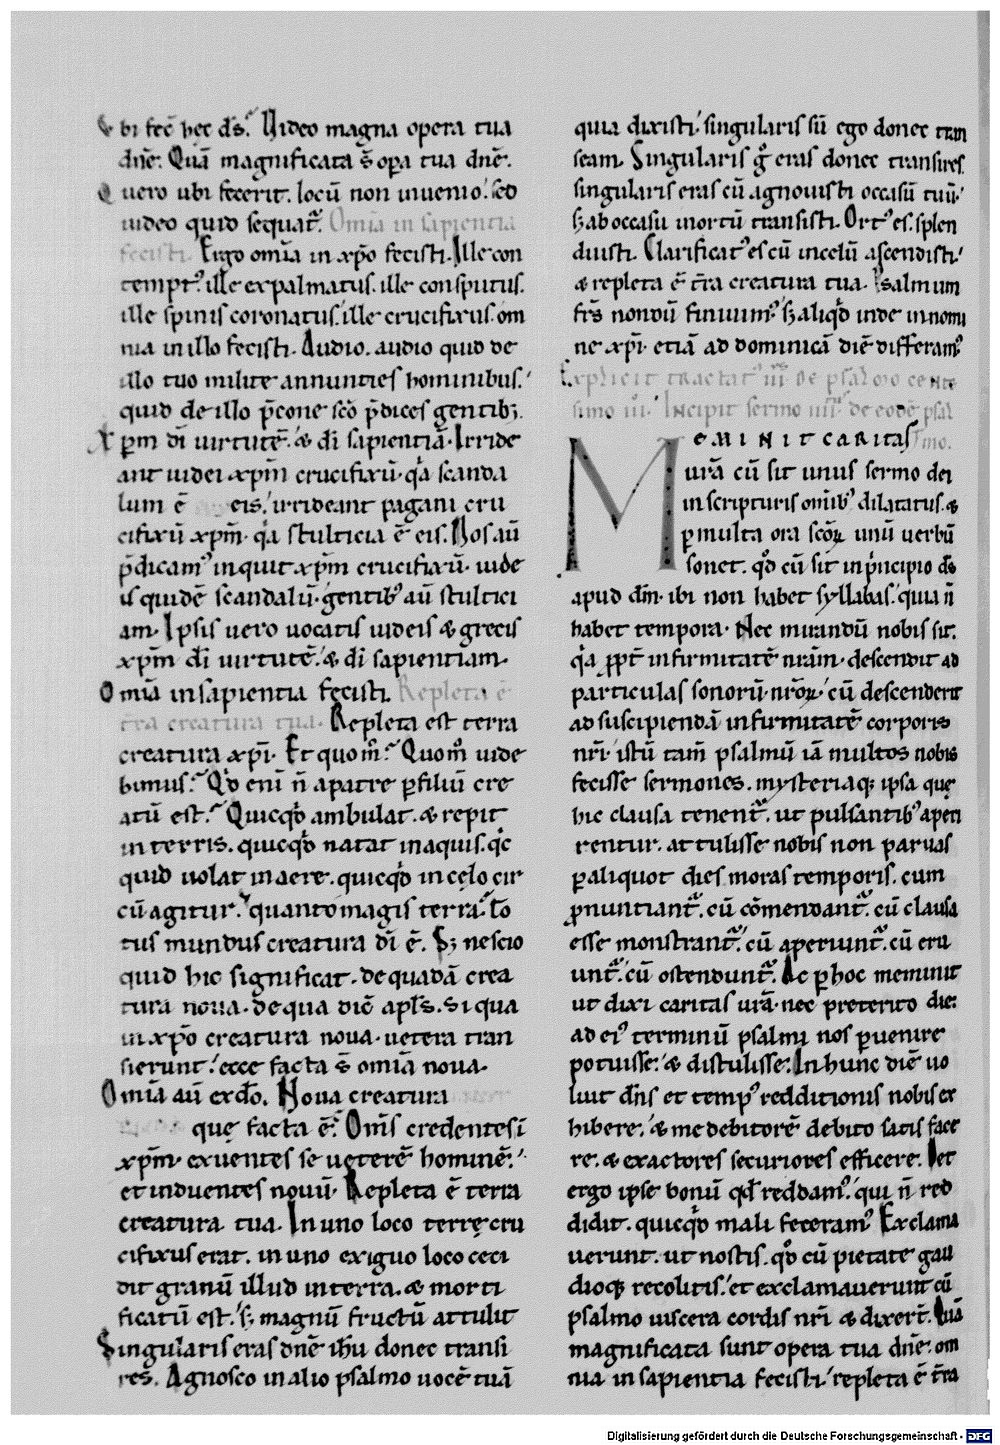 Vbi fec̄ hec ds̄. Video magna opera tua
dn̄e. Quā magnificata s̄ oꝑa tua dn̄e.
Q uero ubi fecerit. locū non inuenio. sed
uideo quid sequat᷑. Om̄ia in sapientia
fecisti. Ergo om̄ia in xp̄o fecisti. Ille con
tempt᷒. ille expalmatus. ille consputus.
ille spinis coronatus. ille crucifixus. om
nia in illo fecisti. Audio. audio quid de
illo tuo milite annunties hominibus.
quid de illo p̄cone sc̄o p̄dices gentibꝫ.
Xp̄m di̅ uirtutē. & di̅ sapientiā. Irride
ant iudei xp̄m crucifixū. q̓a scanda
lum ē eis. irrideant pagani cru
cifixū xp̄m. q̓a stulticia ē eis. Nos aū
p̄dicam᷒ inquit xp̄m crucifixū. iude
is quidē scandalū. gentib᷒ aū stultici
am. Ipsis uero uocatis iudeis & grecis
xp̄m di̅ uirtutē. & di̅ sapientiam.
Om̄ia in sapientia fecisti. Repleta ē
t̄ra creatura tua. Repleta est terra
creatura xp̄i. Et quom̊. Quom̊ uide
bimus. Qd̓ eni̅ n̄ a patre ꝑ filiū cre
atū est. Quicqd̓ ambulat. & repit
in terris. quicqd̓ natat in aquis. qc̓
quid uolat in aere. quicqd̓ in cęlo cir
cū agitur. quanto magis terra. to
tus mundus creatura di̅ ē. Sꝫ nescio
quid hic significat. de quadā crea
tura noua. de qua diē apl̄s. Si qua
in xp̄o creatura noua. uetera tran
sierunt. ecce facta s̄ om̄ia noua.
Om̄ia aū ex do̅. Noua creatura
quę facta ē. Om̄s credentes i̅
xp̄m. exuentes se ueterē hominē.
et induentes nouū. Repleta ē terra
creatura tua. In uno loco terrę cru
cifixus erat. in uno exiguo loco ceci
dit granū illud in terra. & morti
ficatū est. sꝫ magnū fructū attulit
Singularis eras dn̄e ih̄u donec transi
res. Agnosco in alio psalmo uocē tuā
quia dixisti. singularis sū ego donec tran
seam. Singularis g̊ eras donec transires.
singularis eras cū agnouisti occasū tuū.
Sꝫ ab occasu mortū transisti. Ort᷒ es. splen
duisti. Clarificat᷒ es cū in celū ascendisti.
& repleta ē t̄ra creatura tua. Psalmum
fr̄s nondū finiuim᷒. sꝫ aliqd̓ inde in nomi
ne xp̄i. etiā ad dominicā diē differam᷒.
Explicit tractat᷒ iii de psalmo cente
simo iii. Incipit sermo iiii. de eodē psal
mo.
MEMINIT CARITAS
ur̄a cū sit unus sermo dei
in scripturis om̄ib᷒ dilatatus. &
ꝑ multa ora scōꝝ unū uerbū
sonet. qd̓ cū sit in p̓ncipio ds̄
apud dm̄. ibi non habet syllabas. quia n̄
habet tempora. Nec mirandū nobis sit.
q̓a ꝓpt̄ infirmitatē nr̄am. descendit ad
particulas sonorū nr̄oꝝ. cū descenderit
ad suscipiendā infirmitatē corporis
nr̄i. istū tam̄ psalmū iā multos nobis
fecisse sermones. mysteriaqꝫ ipsa quę
hic clausa tenent᷑. ut pulsantib᷒ aperi
rentur. attulisse nobis non paruas
ꝑ aliquot dies moras temporis. cum
ꝓnuntiant᷑. cū cōmendant᷑. cū clausa
esse monstrant᷑. cū aperiunt᷑. cū eru
unt᷑. cū ostendunt᷑. Ac ꝑ hoc meminit
ut dixi caritas ur̄a. nec preterito die.
ad ei᷒ terminū psalmi nos ꝑuenire
potuisse. & distulisse. In hunc diē uo
luit dn̄s et temp᷒ redditionis nobis ex
hibere. & me debitorē debito satis face
re. & exactores securiores efficere. Det
ergo ipse bonū qd̓ reddam᷒. qui n̄ red
didit. quicqd̓ mali feceram᷒ Exclama
uerunt. ut nostis. qd̓ cū pietate gau
dioqꝫ recolitis. et exclamauerunt cū
psalmo uiscera cordis nr̄i & dixer̄t. Quā
magnificata sunt opera tua dn̄e. om
nia in sapientia fecisti. repleta ē t̄ra
Digitalisierung gefördert durch die Deutsche Forschungsgemeinschaft - DFG